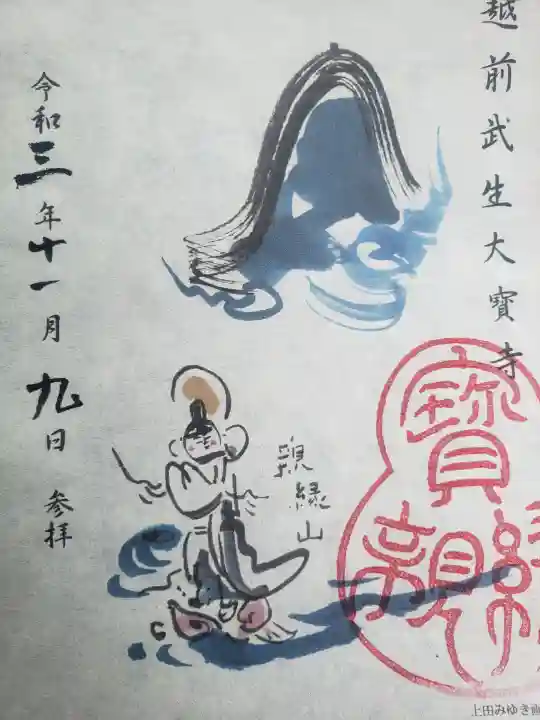 越前武生大寳寺
親縁山
寳
親縁
令和三年十一月九日 参拝
上田みゆき画